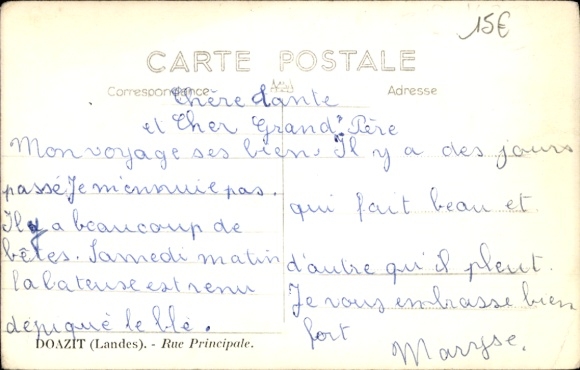 15€
CARTE POSTALE
Correspondance
Adresse
Chère tante
et Cher Grand-Père
Mon voyage ses bien
passé Je m'ennuie pas.
Il y a beaucoup de
bêtes. Samedi matin
la bateuse est venu
dépiqué le blé.
Il y a des jours
qui fait beau et
d'autre qu'il pleut.
Je vous embrasse bien
fort
Maryse.
DOAZIT (Landes). - Rue Principale.